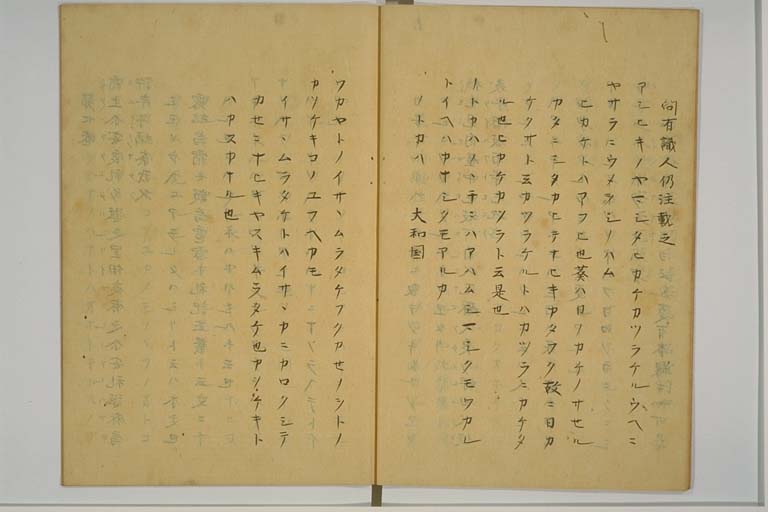 問有識人仍注載之
アシヒキノヤマシタヒカケカツラケルウヘニ
ヤサラニウメヲシノハム
ヒカケトハアフヒ也葵ハ日ノカケノサセル
カタニシタカヒテナヒキカタフク故ニ日カ
ケクサト云カツラケルトハカツラニカケタ
ル也ヒカケカツラト云是也
トイヘハカナシクモアルカ
ノトカハ 大和国
ワカヤトノイサヽムラタケフクカセノヲトノ
カソケキコノユフヘカモ
イサヽムラタケトハイサヽカニカロクシテ
カセニナヒキヤスキムラタケ也カソケキト
ハカスカナル也